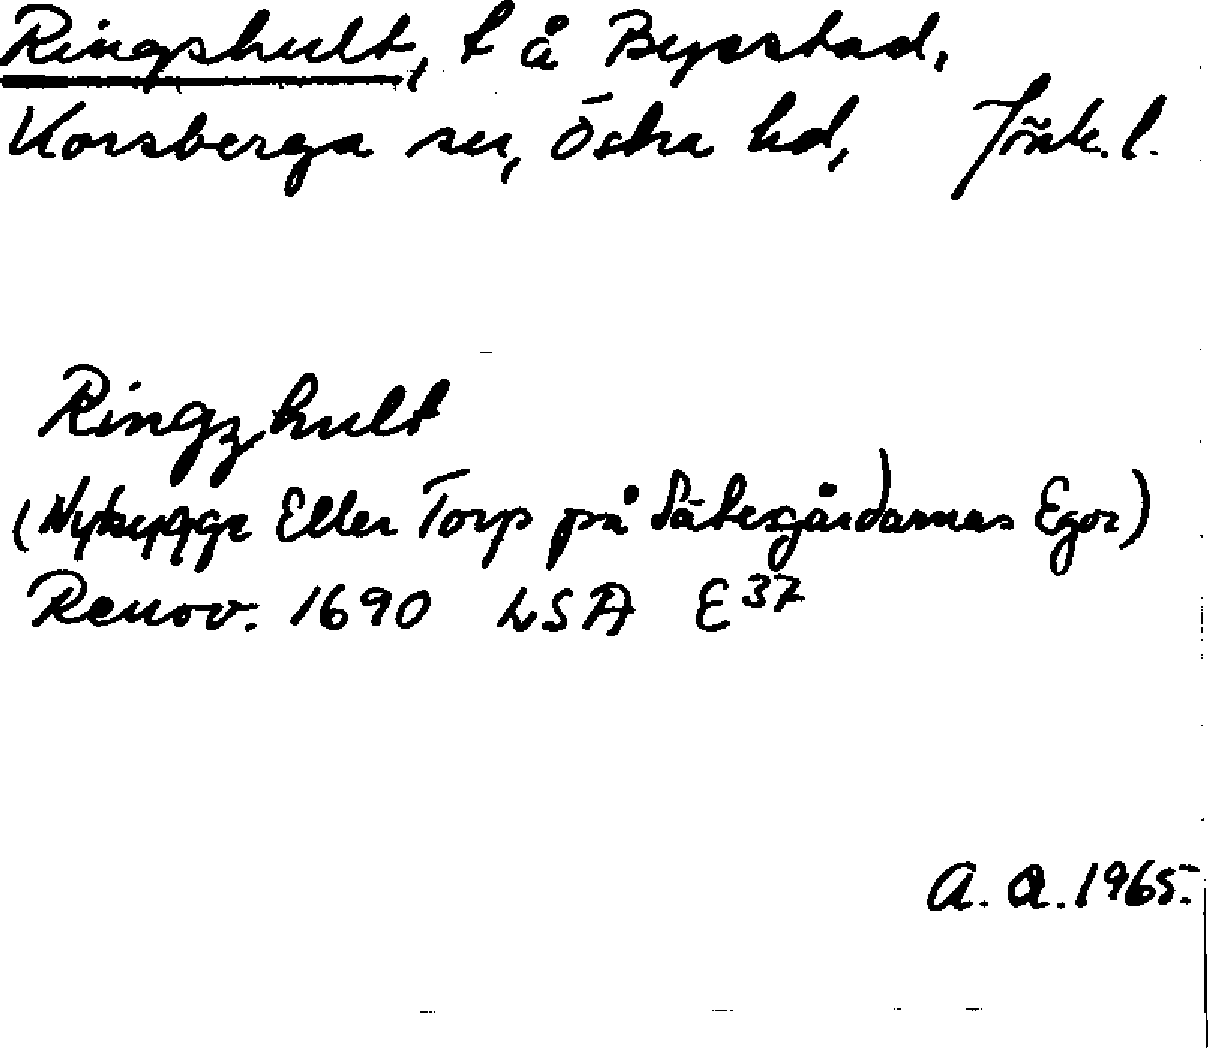 Ringshult, t å Byestad,
Korsberga sn, Östra hd, Jönk. l.
Ringzhult
(Nybygge Eller Torp på Sätesgårdarnas Egor)
Renov. 1690 LSA E 37
A. A. 1965.